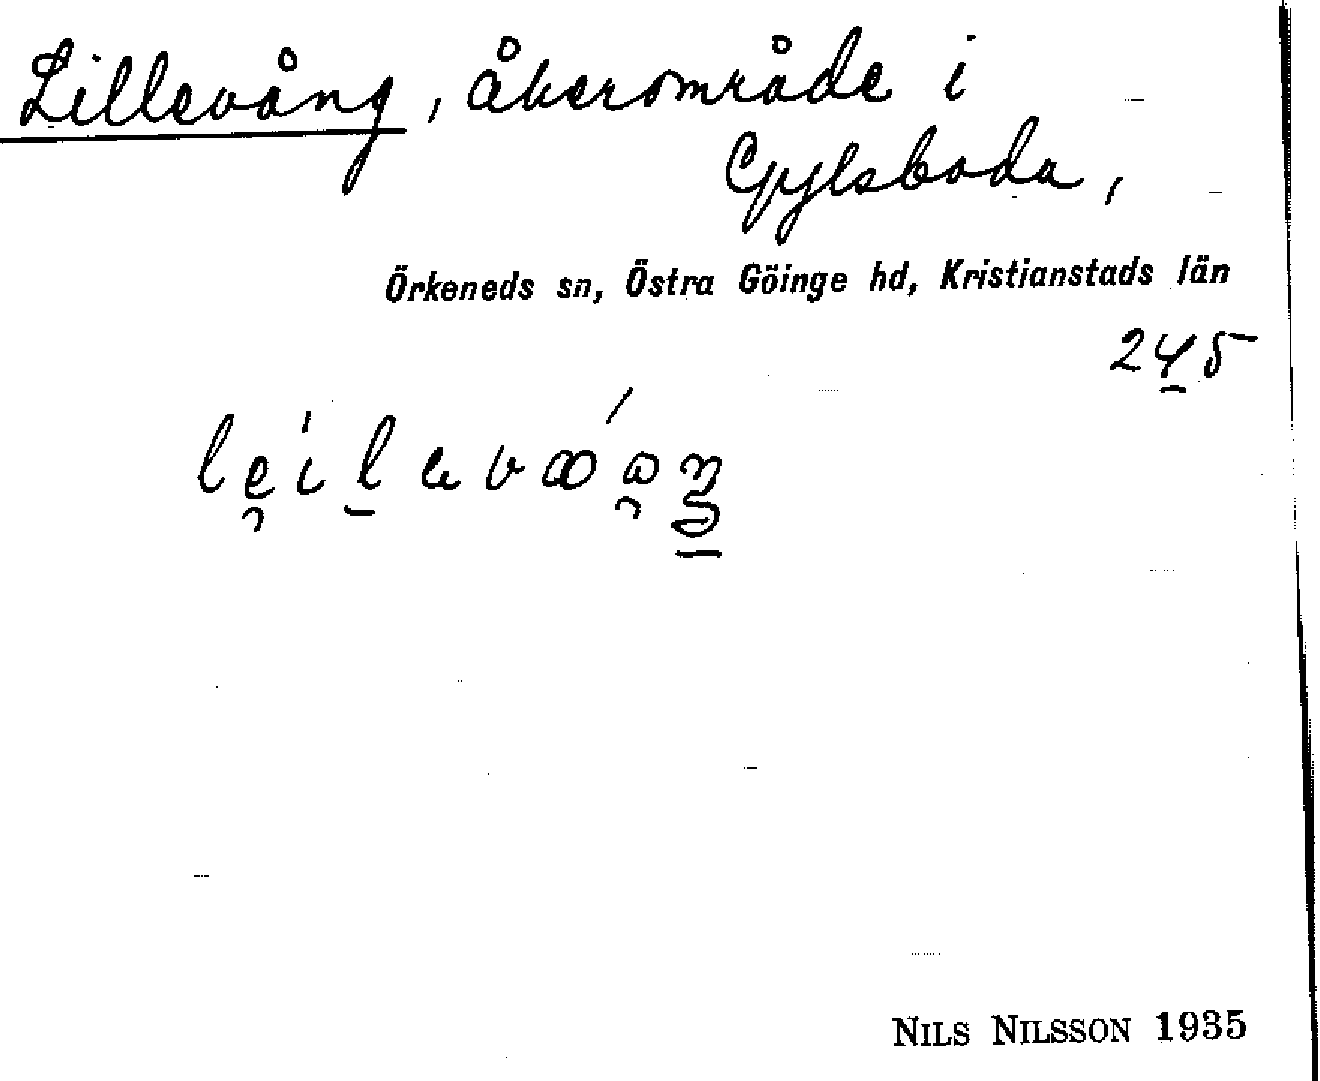 Lillevång, åkerområde i
Gylsboda,
Örkeneds sn, Östra Göinge hd, Kristianstads län
245
NILS NILSSON 1935